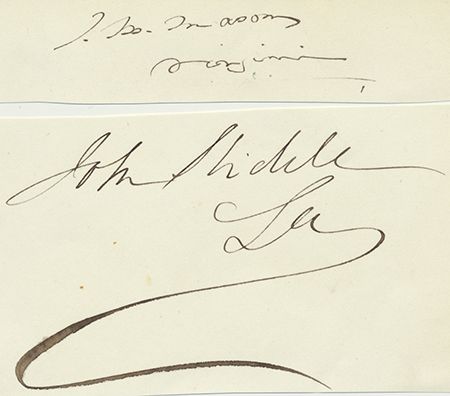 J. M. Mason
Virginia
John Slidell
La